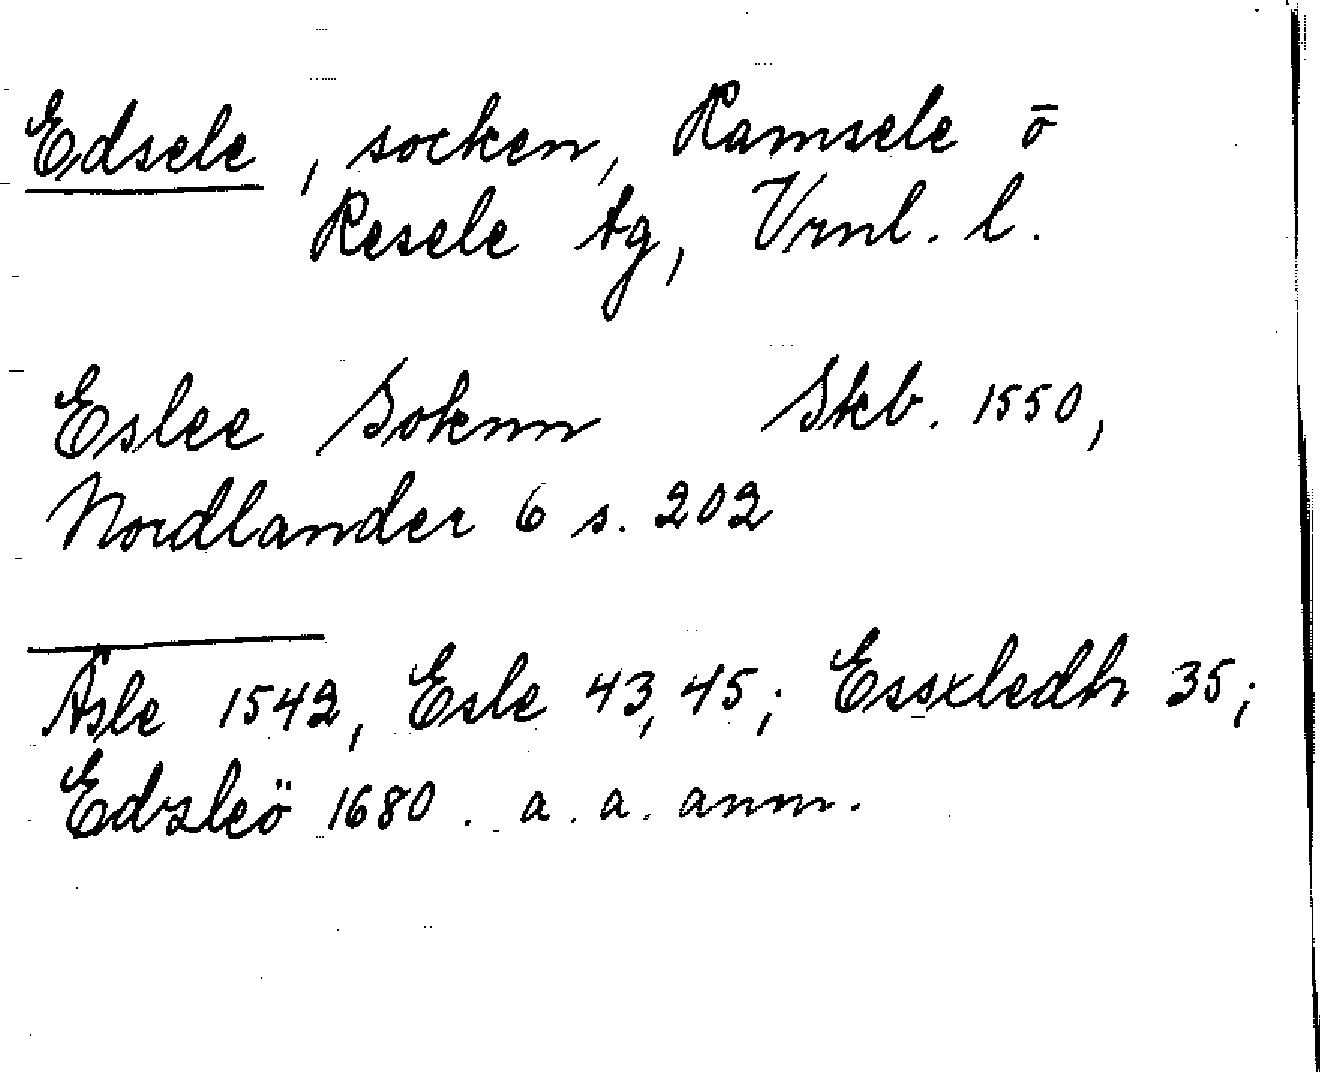 Edsele, socken, Ramsele o
Resele tg, Vrml. l.
Eslee Soknn Skb. 1550,
Nordlander 6 s. 202
Äsle 1542, Esle 43, 45; Essxledh 35;
Edzsleö 1680. a. a. anm.